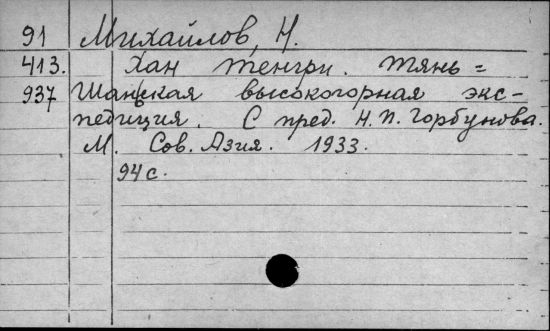 91 Михайлов, Н.
413. Хан Тенгри. Тянь=
937 Шанская высокогорная экс-
педиция. С пред. Н.П. Горбунова.
М. Сов. Азия. 1933.
94 с.